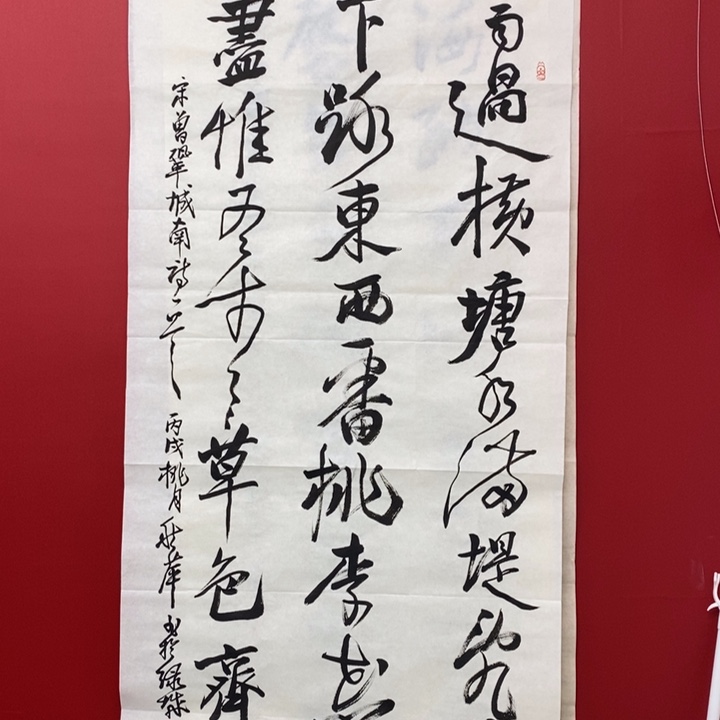 雨過橫塘水滿堤亂
下路東西一番桃李花
盡惟有青青草色齊
宋曾鞏城南詩一首 丙戌桃月 書於綠城